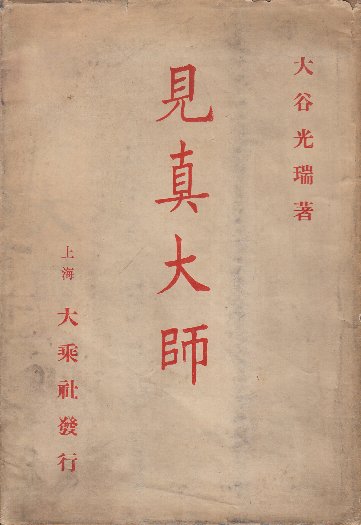 大谷光瑞著
見真大師
上海 大乘社發行